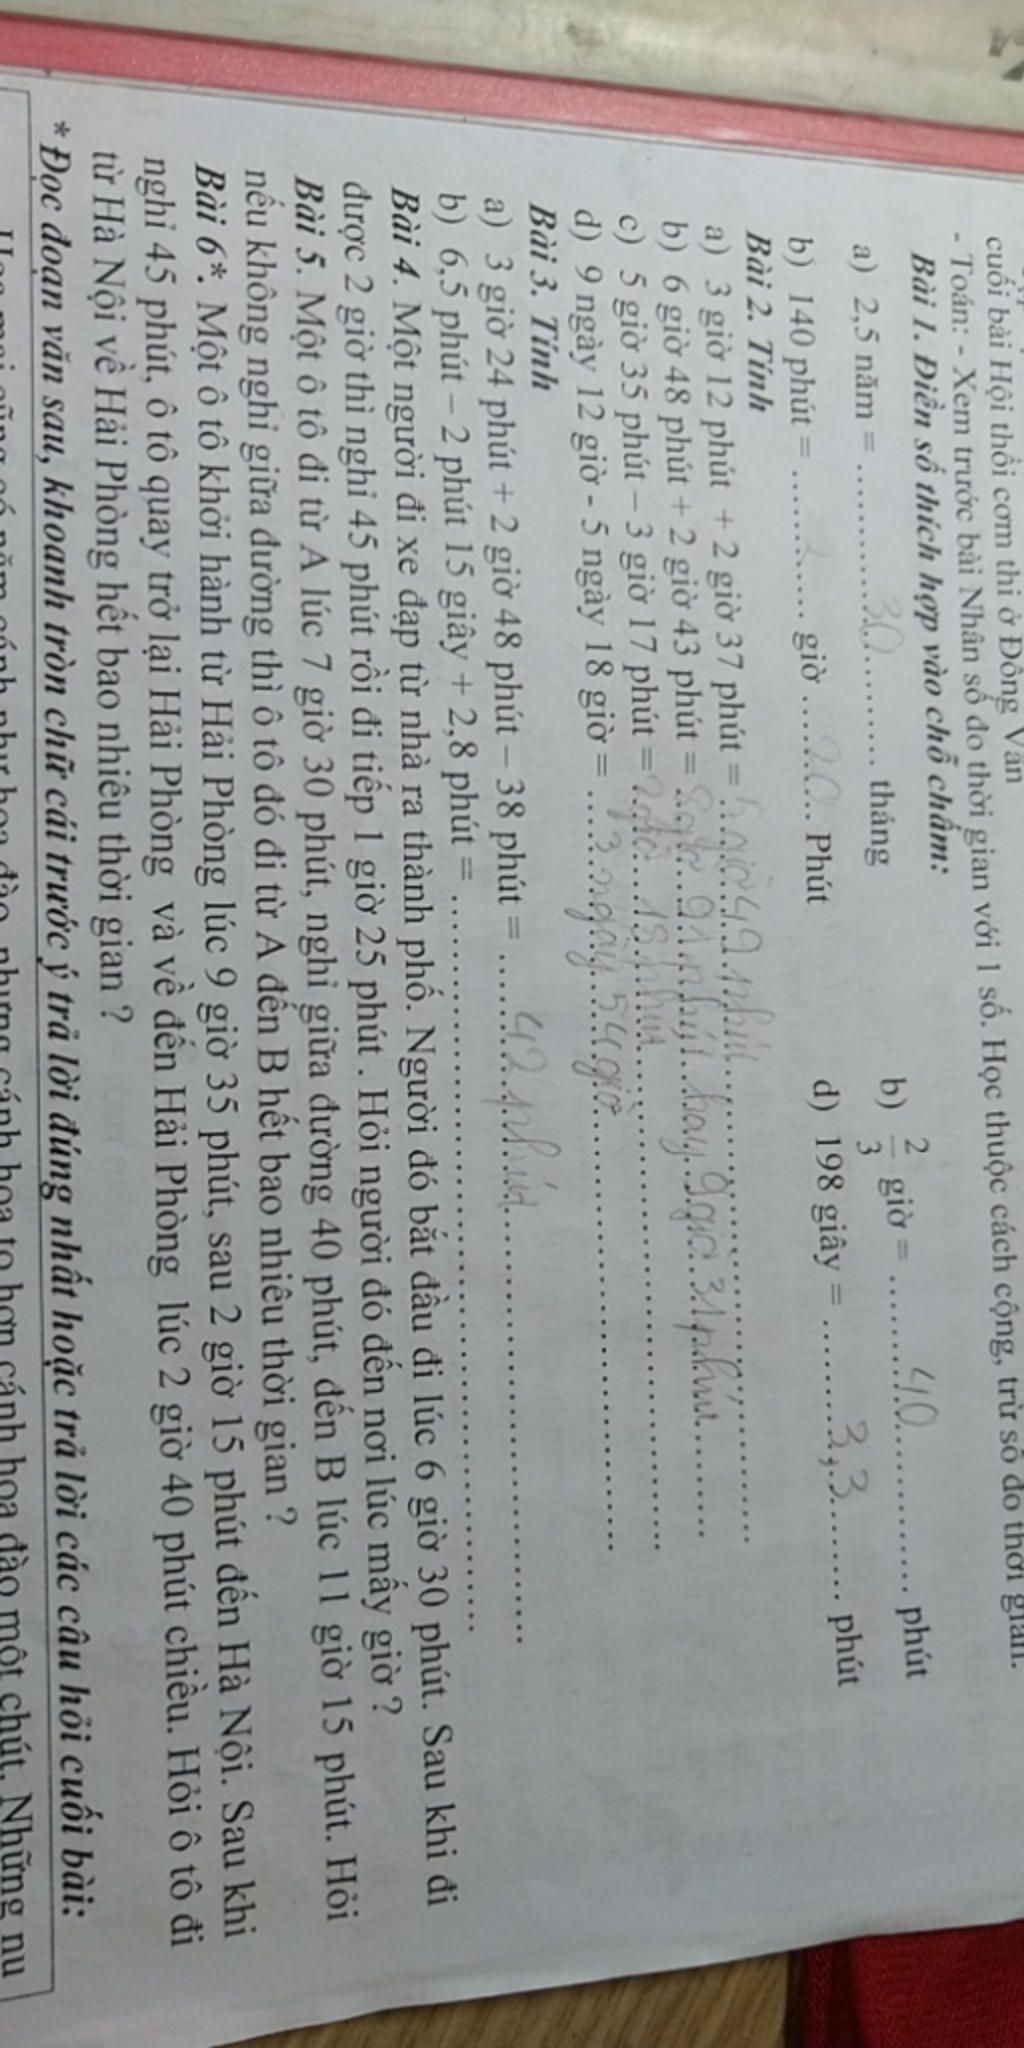 cuối bài Hội thổi cơm thi ở Đồng Vân
- Toán: - Xem trước bài Nhân số đo thời gian với 1 số. Học thuộc cách cộng, trừ số đo thời gian.
Bài 1. Điền số thích hợp vào chỗ chấm:
a) 2,5 năm = ...........30........... tháng b) 2/3 giờ = ..........40............ phút
b) 140 phút = .......2....... giờ ......20.... Phút d) 198 giây = ..........3,3.......... phút
Bài 2. Tính
a) 3 giờ 12 phút + 2 giờ 37 phút = 5 giờ 49 phút
b) 6 giờ 48 phút + 2 giờ 43 phút = 8 giờ 91 phút hay 9 giờ 31 phút
c) 5 giờ 35 phút – 3 giờ 17 phút = 2 giờ 18 phút
d) 9 ngày 12 giờ - 5 ngày 18 giờ = .....3 ngày 54 giờ
Bài 3. Tính
a) 3 giờ 24 phút + 2 giờ 48 phút – 38 phút = ......42 phút
b) 6,5 phút – 2 phút 15 giây + 2,8 phút = ......
Bài 4. Một người đi xe đạp từ nhà ra thành phố. Người đó bắt đầu đi lúc 6 giờ 30 phút. Sau khi đi
được 2 giờ thì nghỉ 45 phút rồi đi tiếp 1 giờ 25 phút . Hỏi người đó đến nơi lúc mấy giờ ?
Bài 5. Một ô tô đi từ A lúc 7 giờ 30 phút, nghỉ giữa đường 40 phút, đến B lúc 11 giờ 15 phút. Hỏi
nếu không nghỉ giữa đường thì ô tô đó đi từ A đến B hết bao nhiêu thời gian ?
Bài 6*. Một ô tô khởi hành từ Hải Phòng lúc 9 giờ 35 phút, sau 2 giờ 15 phút đến Hà Nội. Sau khi
nghỉ 45 phút, ô tô quay trở lại Hải Phòng và về đến Hải Phòng lúc 2 giờ 40 phút chiều. Hỏi ô tô đi
từ Hà Nội về Hải Phòng hết bao nhiêu thời gian ?
* Đọc đoạn văn sau, khoanh tròn chữ cái trước ý trả lời đúng nhất hoặc trả lời các câu hỏi cuối bài:
Hoa mai cũng có năm cánh như hoa đào, nhưng cánh hoa to hơn cánh hoa đào một chút. Những nụ